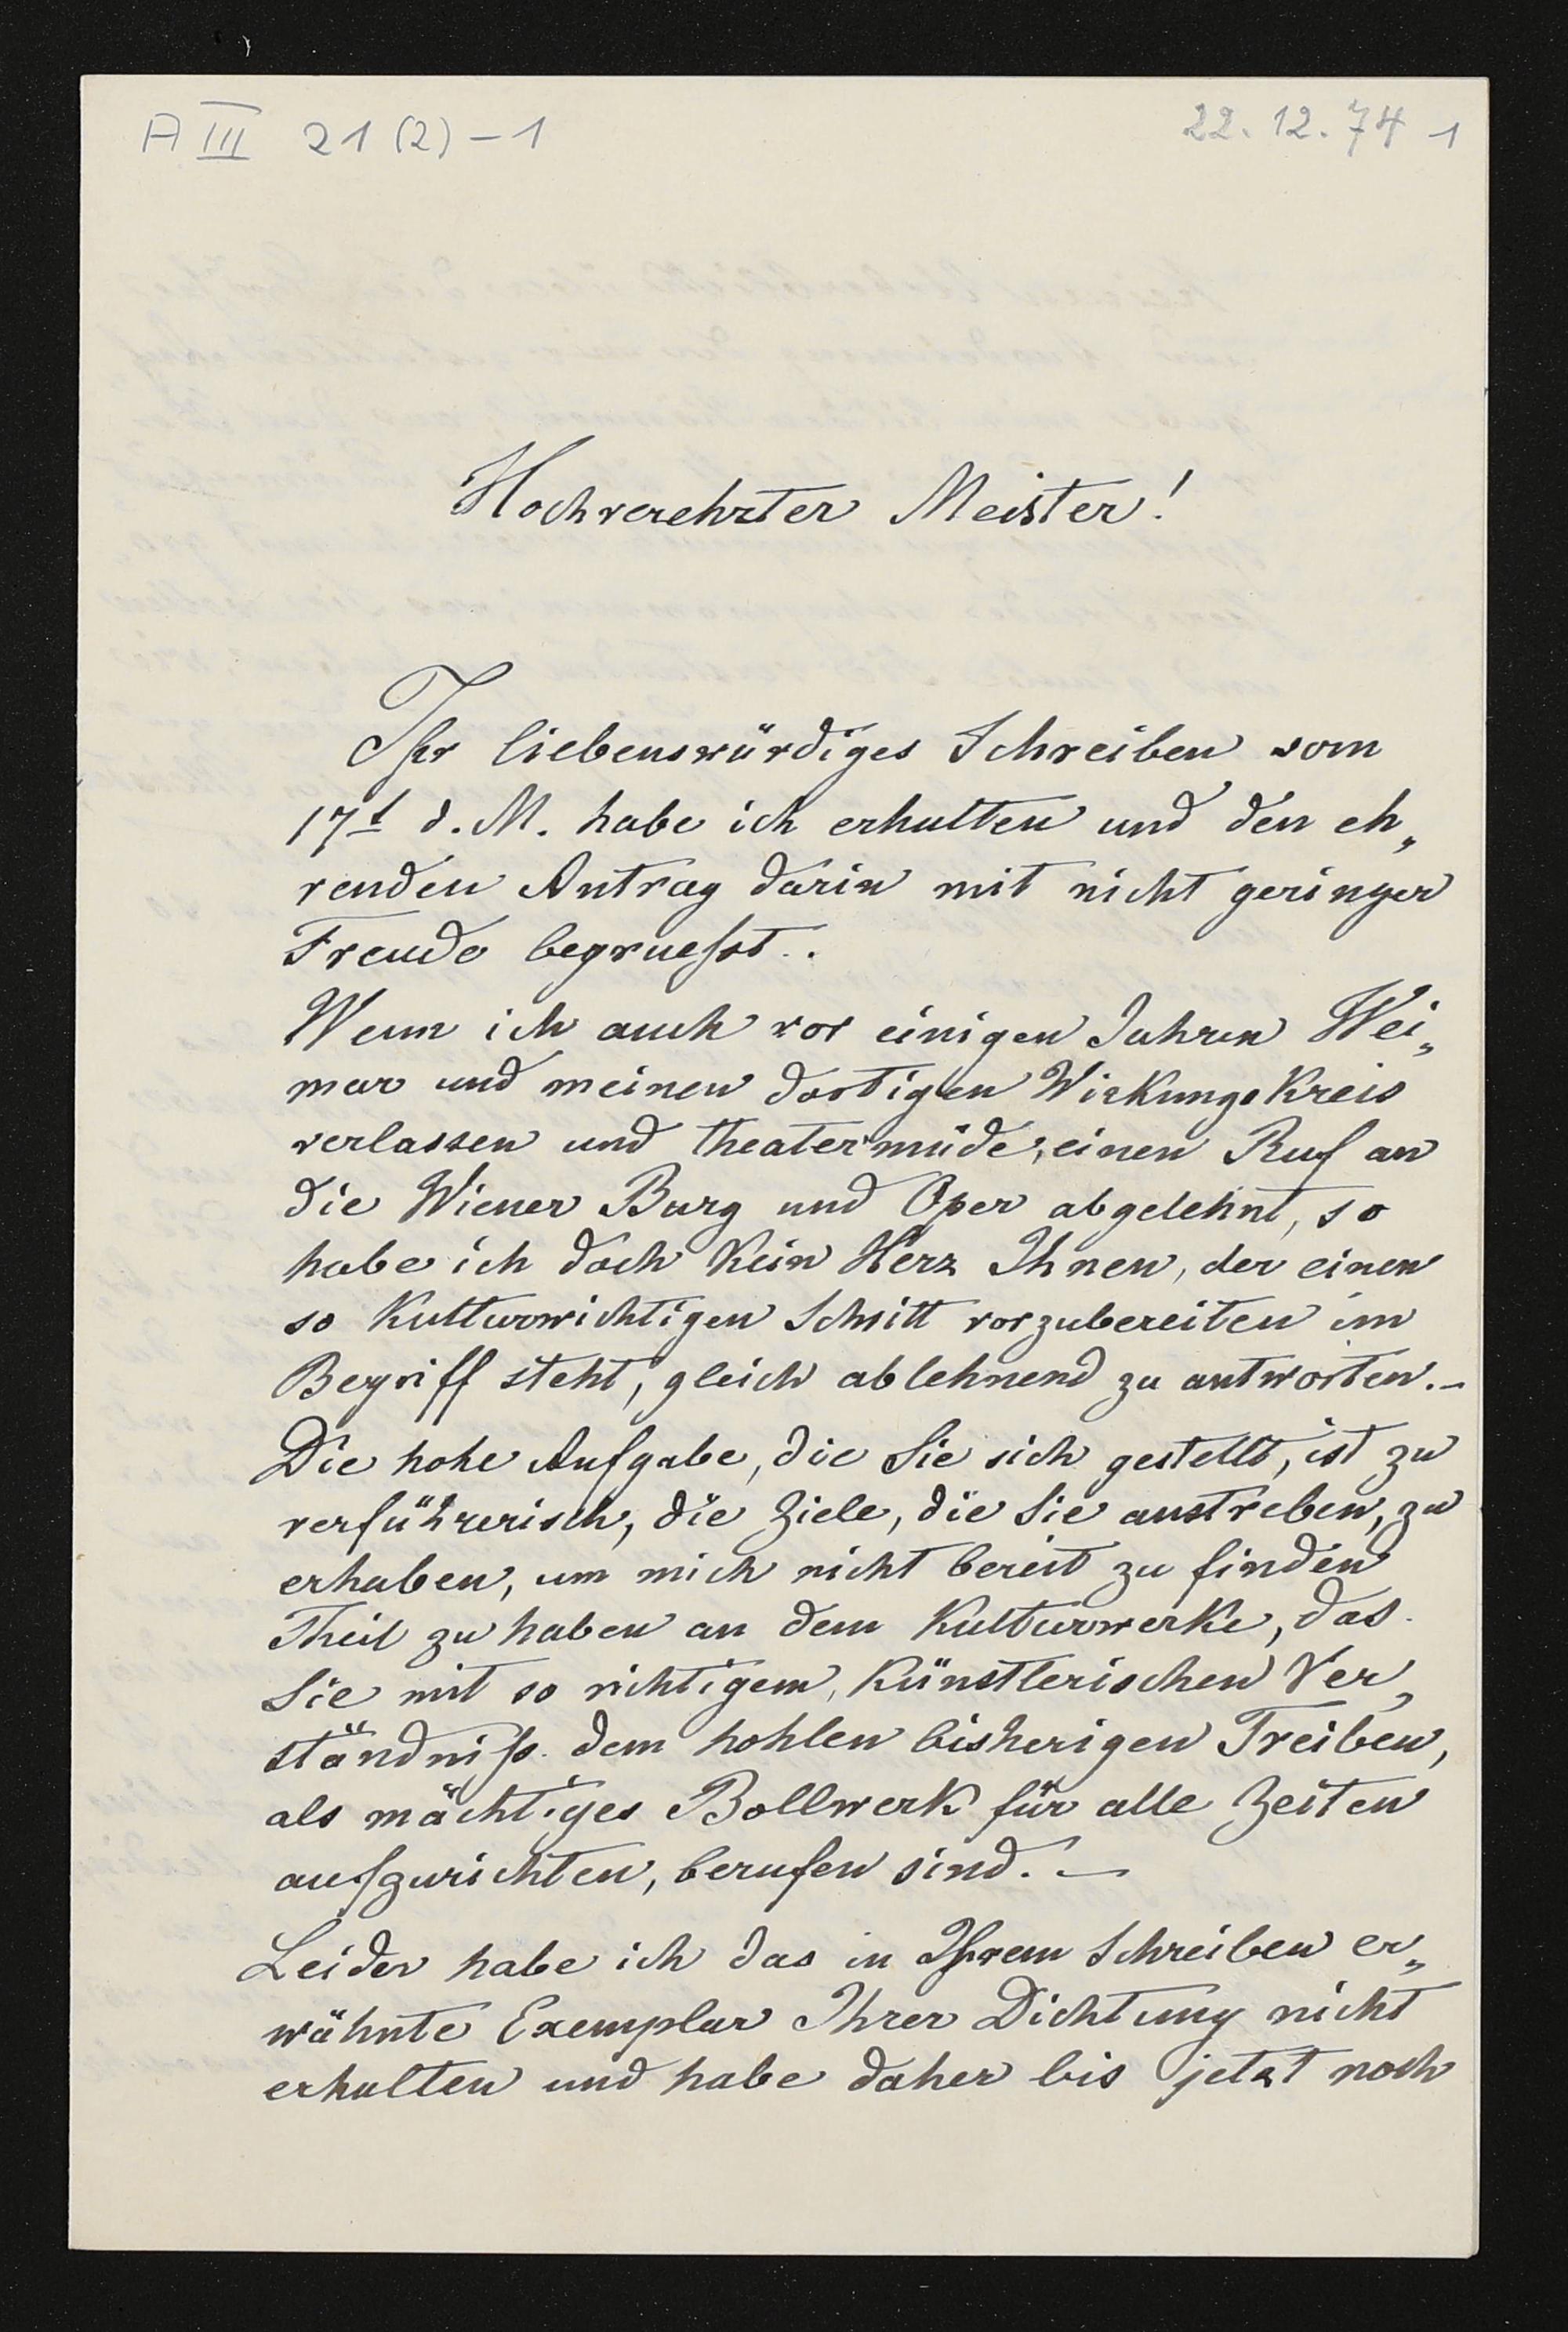 A III 21 (2) – 1
22. 12. 74 1
Hochverehrter Meister!
Ihr liebenswürdiges Schreiben vom
17t d. M. habe ich erhalten und den eh„
renden Antrag darin mit nicht geringer
Freude begruesst..
Wenn ich auch vor einigen Jahren Wei„
mar und meinen dortigen Wirkungskreis
verlassen und theatermüde, einen Ruf an
die Wiener Burg und Oper abgelehnt, so
habe ich doch kein Herz Ihnen, der einen
so kulturwichtigen Schritt vorzubereiten im
Begriff steht, gleich ablehnend zu antworten. –
Die hohe Aufgabe, die Sie sich gestellt, ist zu
verführerisch, die Ziele, die Sie anstreben, zu
erhaben, um mich nicht bereit zu finden
Theil zu haben an dem Kulturwerke, das
Sie mit so richtigem, künstlerischen Ver„
ständniß dem hohlen bisherigen Treiben,
als mächtiges Bollwerk für alle Zeiten
aufzurichten, berufen sind. –
Leider habe ich das in Ihrem Schreiben er„
wähnte Exemplar Ihrer Dichtung nicht
erhalten und habe daher bis jetzt noch